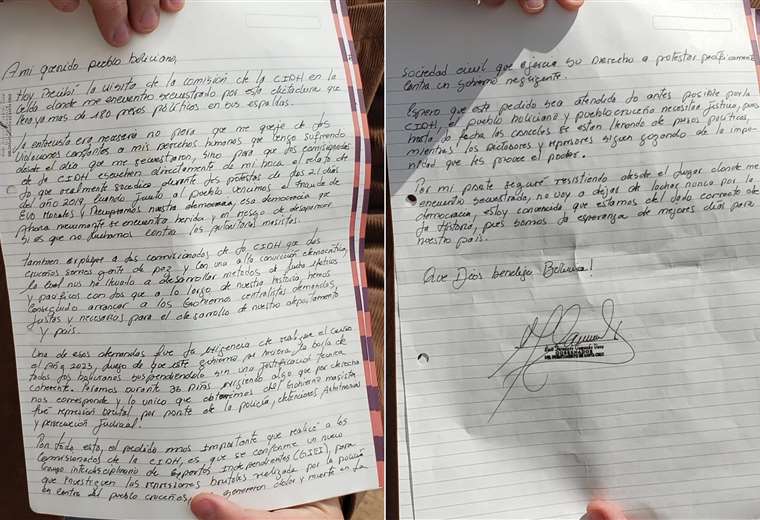 A mi querido pueblo boliviano,
Hoy recibí la visita de la comisión de la CIDH en la
celda donde me encuentro secuestrado por esta dictadura que
lleva ya mas de 180 presos políticos en sus espaldas.
La entrevista era necesaria no para que me queje de las
violaciones constantes a mis derechos humanos que vengo sufriendo
desde el día que me secuestraron, sino para que los comisionados
de la CIDH escuchen directamente de mi boca el relato de
lo que realmente sucedió durante las protestas de los 21 días
del año 2019, cuando junto al pueblo vencimos el fraude de
Evo Morales y recuperamos nuestra democracia, esa democracia que
ahora nuevamente se encuentra herida y en riesgo de desaparecer
si es que no luchamos contra los autoritarios masistas.
También expliqué a los comisionados de la CIDH que los
cruceños somos gente de paz y con una alta convicción democrática,
la cual nos ha llevado a desarrollar metodos de lucha
y pacificos con los que a lo largo de nuestra historia, hemos
conseguido arrancar a los Gobiernos centralistas demandas
justas y necesarias para el desarrollo de nuestro departamento
y país.
Una de esas demandas fue la exigencia de realizar el censo
el año 2023, luego de que este gobierno por
todos los bolivianos suspendiendolo sin una justificación técnica
coherente. Paramos durante 36 días exigiendo algo que por derecho
nos corresponde y lo unico que obtuvimos del Gobierno masista
fué represión brutal por parte de la policía, detenciones arbitrarias
y persecución judicial.
Por todo esto, el pedido mas importante que realicé a los
comisionados de la CIDH, es que se conforme un nuevo
Grupo interdisciplinario de Expertos Independientes (GIEI), para
que investiguen las represiones brutales realizada por la policía
en contra del pueblo cruceño, generaron dolor y muerte en la
sociedad civil que ejercia su derecho a protestar pacificamente
contra un gobierno negligente.
Espero que este pedido sea atendido lo antes posible por la
CIDH, el pueblo boliviano y pueblo cruceño necesita justicia, pues
hasta la fecha las carceles se estan llenando de presos políticos,
mientras los dictadores y represores siguen gozando de la impu-
nidad que les provee el poder.
Por mi parte seguiré resistiendo desde el lugar donde me
encuentro secuestrado, no voy a dejar de luchar nunca por la
democracia, estoy convencido que estamos del lado correcto de
la historia, pues somos la esperanza de mejores días para
nuestro país.
Que Dios bendiga Bolivia!
Luis Fernando Camacho Vaca
GOBERNADOR